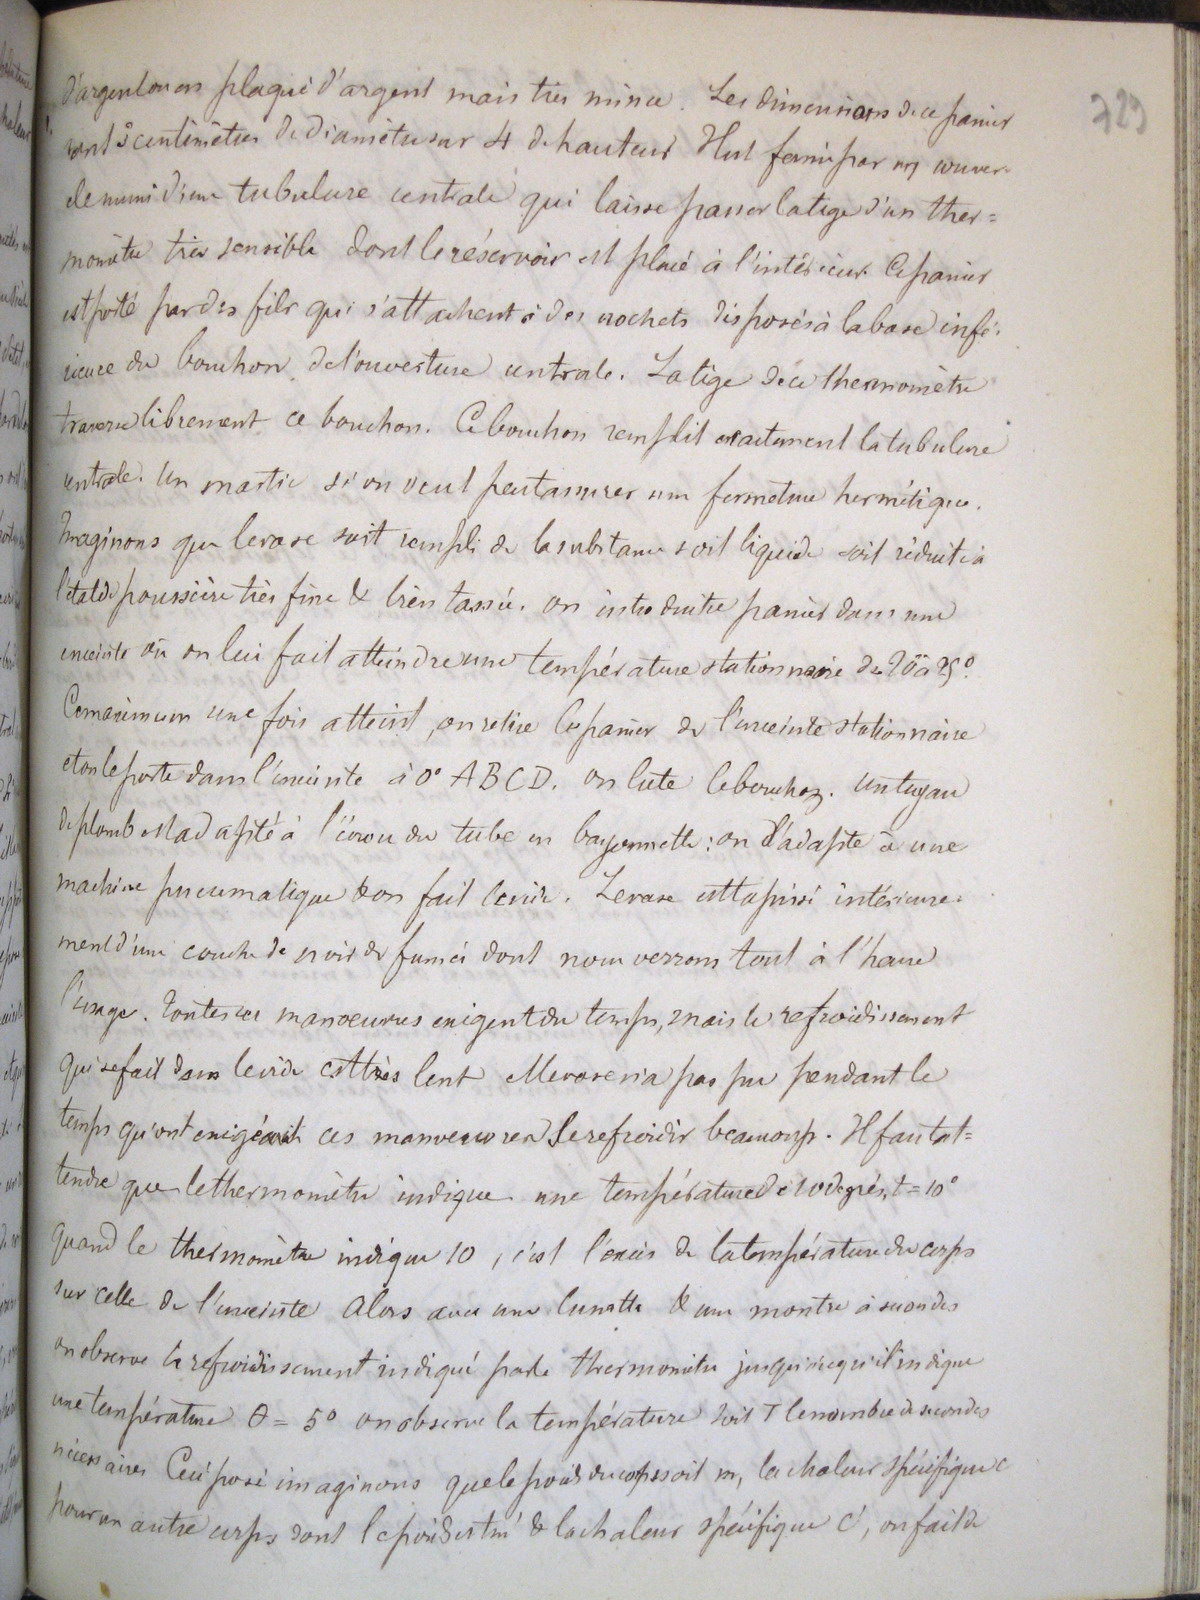 729
d'argent ou en plaqué d'argent mais très mince. Les dimensions de ce panier
sont 3 centimètres de diamètre sur 4 de hauteur Il est fermé par un couver-
cle muni d'une tubulure centrale qui laisse passer la tige d'un ther=
momètre très sensible dont le réservoir est placé à l'intérieur. Ce panier
est porté par des fils qui s'attachent à des crochets disposés à la base infé-
rieure du bouchon de l'ouverture centrale. La tige de ce thermomètre
traverse librement ce bouchon. Ce bouchon remplit exactement la tubulure
centrale. Un mastic si on veut peut assurer une fermeture hermétique.
Imaginons que le vase soit rempli de la substance soit liquide soit réduite à
l'état de poussière très fine & bien tassée. on introduit ce panier dans une
enceinte où on lui fait atteindre une température stationnaire de 20 à 25°.
Ce maximum une fois atteint, on retire le panier de l'enceinte stationnaire
et on le porte dans l'enceinte à 0° ABCD. on lute le bouchon. Un tuyau
de plomb est adapté à l'écrou du tube en bayonnette: on l'adapte à une
machine pneumatique & on fait le vide. Le vase est tapissé intérieure-
ment d'une couche de noir de fumée dont nous verrons tout à l'heure
l'usage. Toutes ces manoeuvres exigent du temps, mais le refroidissement
qui se fait dans le vide est très lent et le vase n'a pas pu pendant le
temps qu'ont exigé ces manoeuvres se refroidir beaucoup. Il faut at=
tendre que le thermomètre indique une température de 10 degrés, t = 10°
quand le thermomètre indique 10, c'est l'excès de la température du corps
sur celle de l'enceinte Alors avec une lunette & une montre à secondes
on observe le refroidissement indiqué par le thermomètre jusqu'à ce qu'il indique
une température θ = 5° on observe la température soit T le nombre de secondes
nécessaires Ceci posé imaginons que le poids du corps soit m, la chaleur spécifique c
pour un autre corps dont le poids est m' & la chaleur spécifique c', on fait de